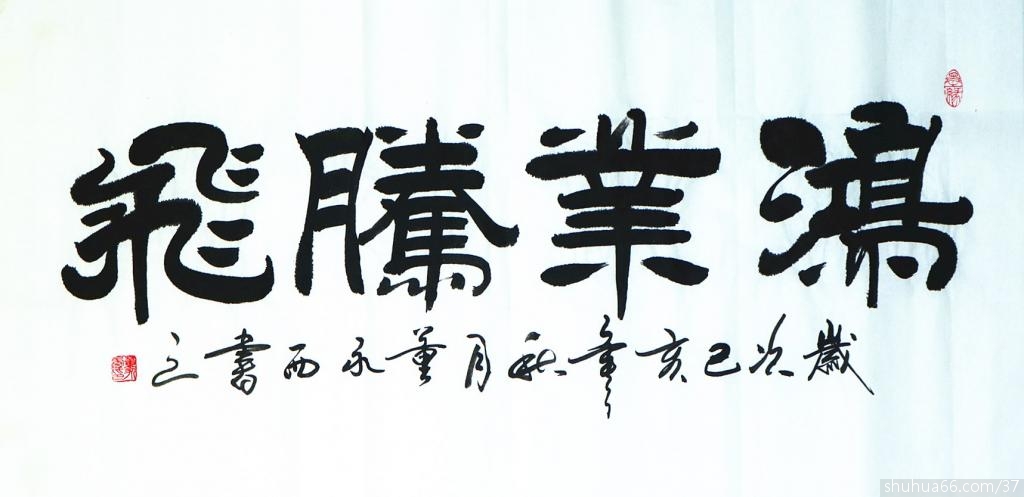 鴻業騰飛
歲次己亥年秋月董永西書之
shuhua66.com/37